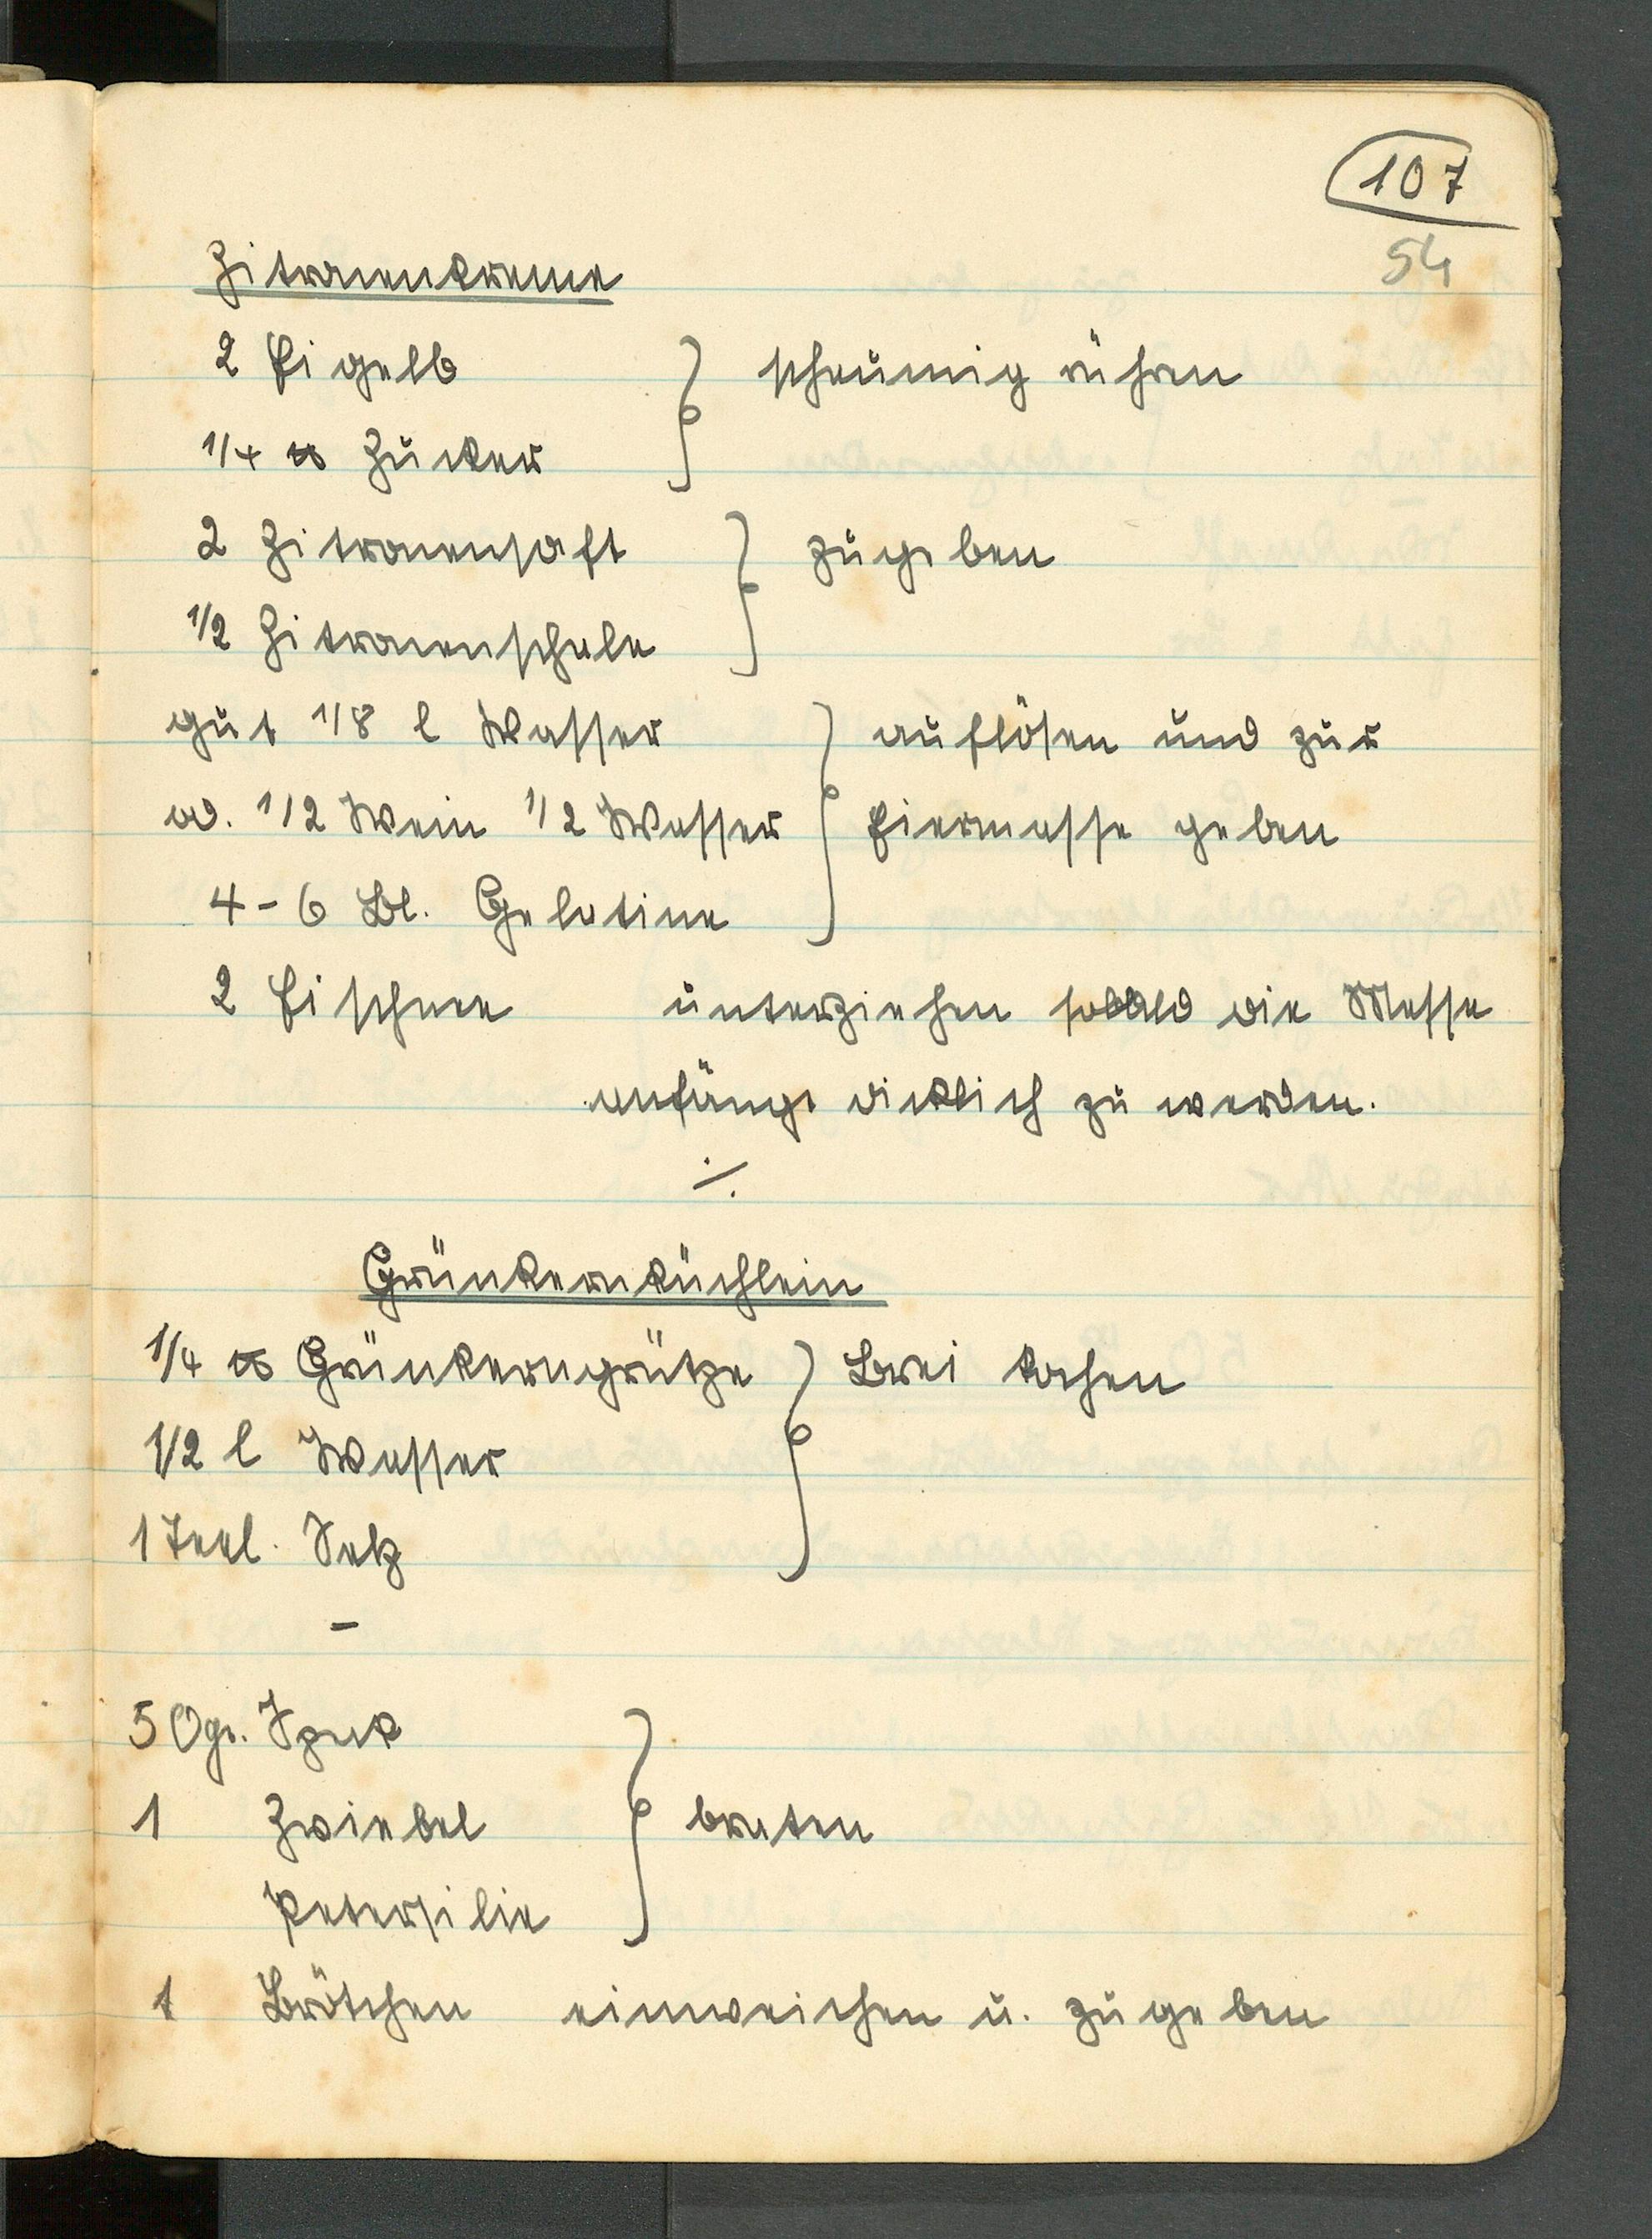 107
54
Zitronenkreme
2 Eigelb } schaumig rühren
1/4 ℔ Zucker
2 Zitronensaft } zugeben
1/2 Zitronenschale
gut 1/8 l Wasser } auflösen und zur
od. 1/2 Wein 1/2 Wasser Eiermasse geben
4-6 Bl. Gelatine
2 Eischnee unterziehen sobald die Masse
anfängt dicklich zu werden.
./.
Grünkernküchlein
1/4 ℔ Grünkerngrütze } Brei kochen
1/2 l Wasser
1 Teel. Salz
-
50gr. Speck
1 Zwiebel } braten
Petersilie
1 Brötchen einweichen u. zugeben